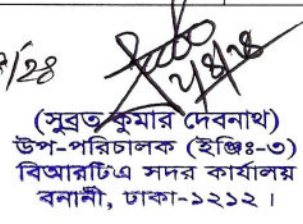 /২৪
২/৪/২৪
(সুব্রত কুমার দেবনাথ)
উপ-পরিচালক (ইঞ্জিঃ-৩)
বিআরটিএ সদর কার্যালয়
বনানী, ঢাকা-১২১২।